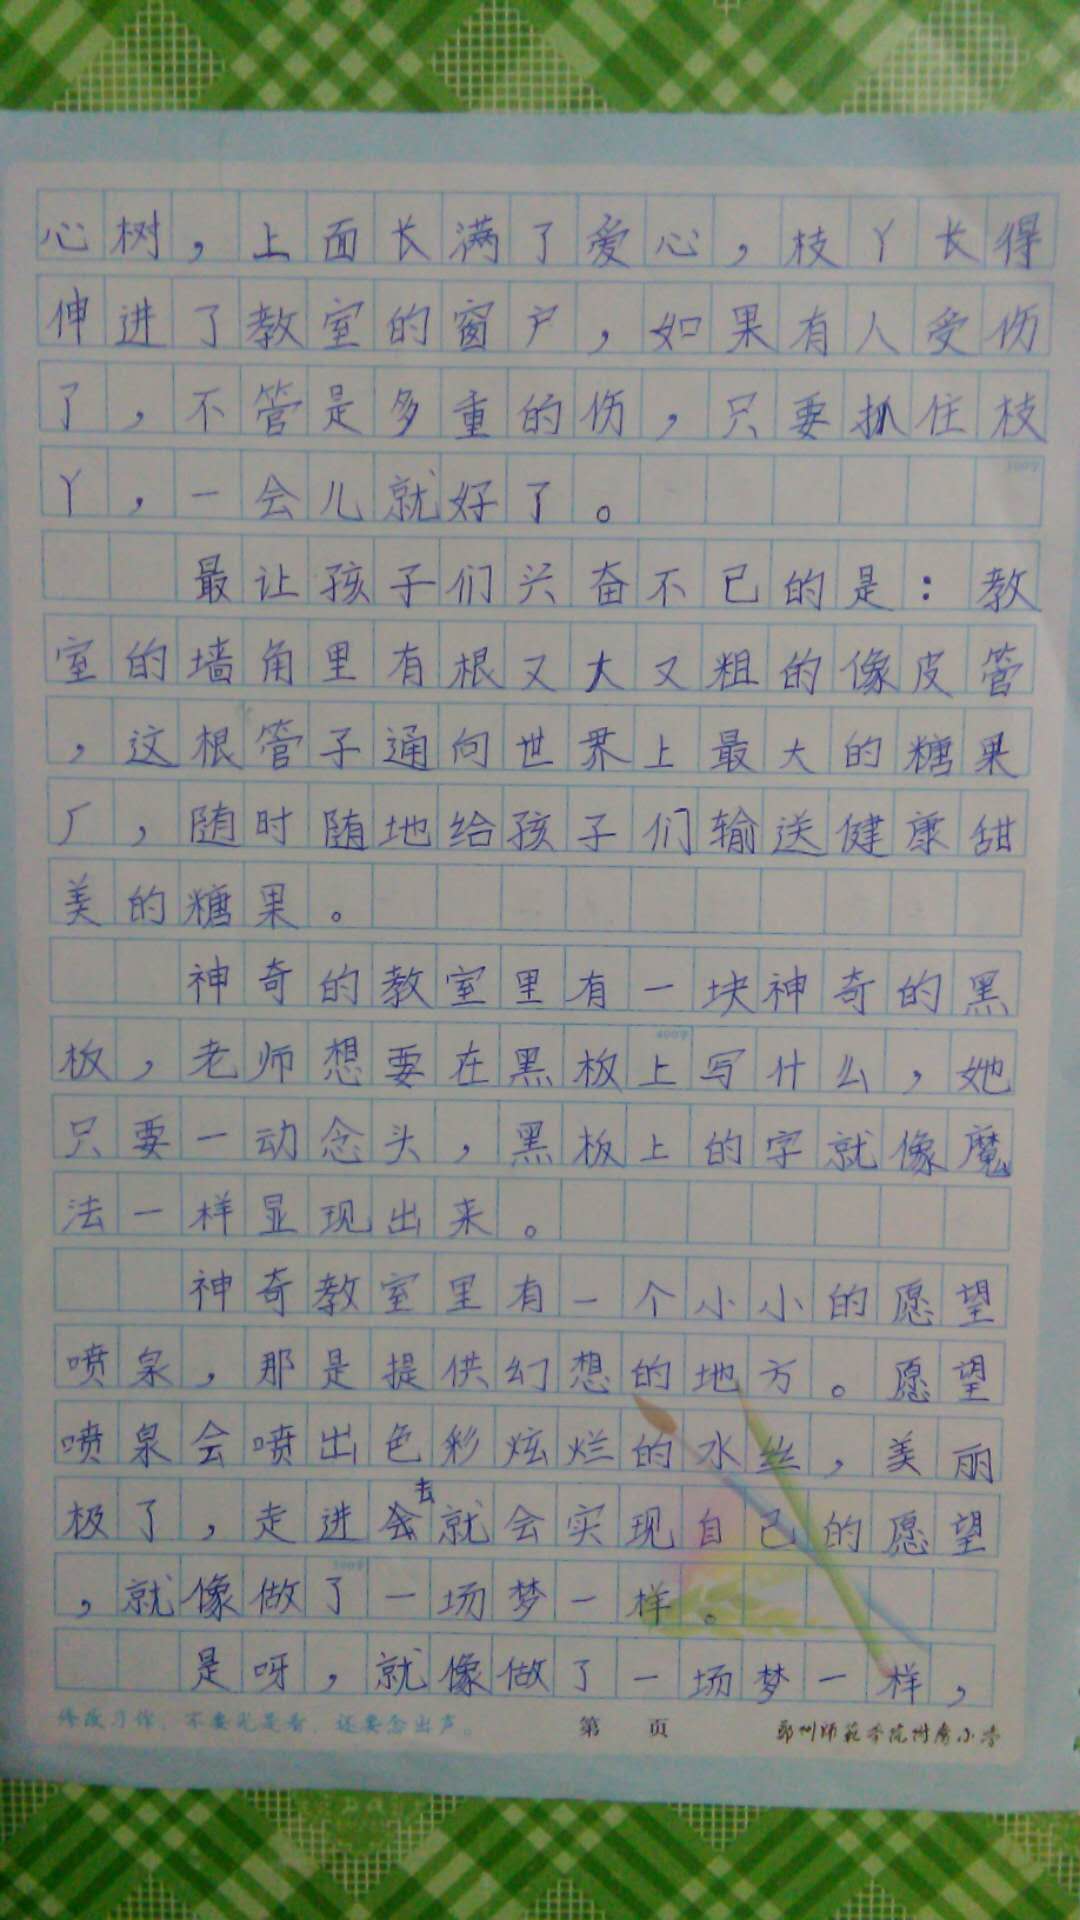 心树，上面长满了爱心，枝丫长得
伸进了教室的窗户，如果有人受伤
了，不管是多重的伤，只要抓住枝
丫，一会儿就好了。
最让孩子们兴奋不已的是：教
室的墙角里有根又大又粗的像皮管
，这根管子通向世界上最大的糖果
厂，随时随地给孩子们输送健康甜
美的糖果。
神奇的教室里有一块神奇的黑
板，老师想要在黑板上写什么，她
只要一动念头，黑板上的字就像魔
法一样显现出来。
神奇教室里有一个小小的愿望
喷泉，那是提供幻想的地方。愿望
喷泉会喷出色彩炫烂的水丝，美丽
极了，走进去就会实现自己的愿望
，就像做了一场梦一样。
是呀，就像做了一场梦一样，
修改习作，不要光是看，还要念出声。 第 页 郑州师范学院附属小学